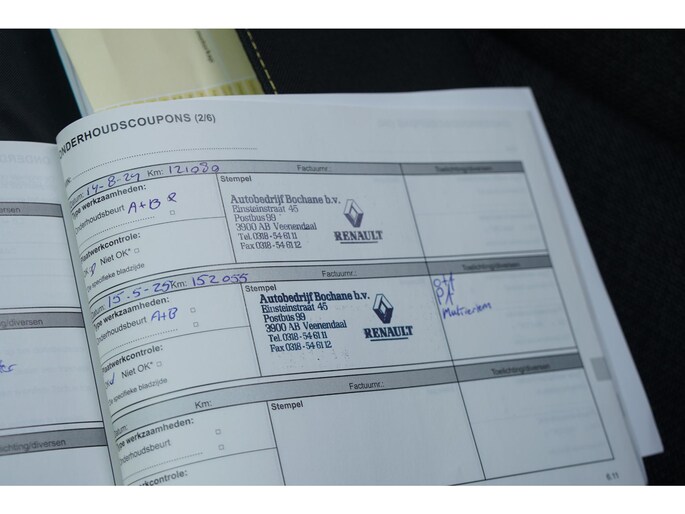 ONDERHOUDSCOUPONS (2/6)
Factuurnr.:
Toelichting/diversen
Datum: 14-8-24 Km: 121030
Type werkzaamheden:
Onderhoudsbeurt A+B
Plaatwerkcontrole:
Niet OK*
Zie specifieke bladzijde
Stempel
Autobedrijf Bochane b.v.
Einsteinstraat 45
Postbus 99
3900 AB Veenendaal
Tel. 0318-54 61 11
Fax 0318-54 61 12
RENAULT
Factuurnr.:
Toelichting/diversen
Datum: 15-5-25 Km: 152055
Type werkzaamheden:
Onderhoudsbeurt A+B
Plaatwerkcontrole:
Niet OK*
Zie specifieke bladzijde
Stempel
Autobedrijf Bochane b.v.
Einsteinstraat 45
Postbus 99
3900 AB Veenendaal
Tel. 0318-54 61 11
Fax 0318-54 61 12
RENAULT
Factuurnr.:
Toelichting/diversen
Datum:
Km:
Type werkzaamheden:
Onderhoudsbeurt
Plaatwerkcontrole:
Stempel
6.11